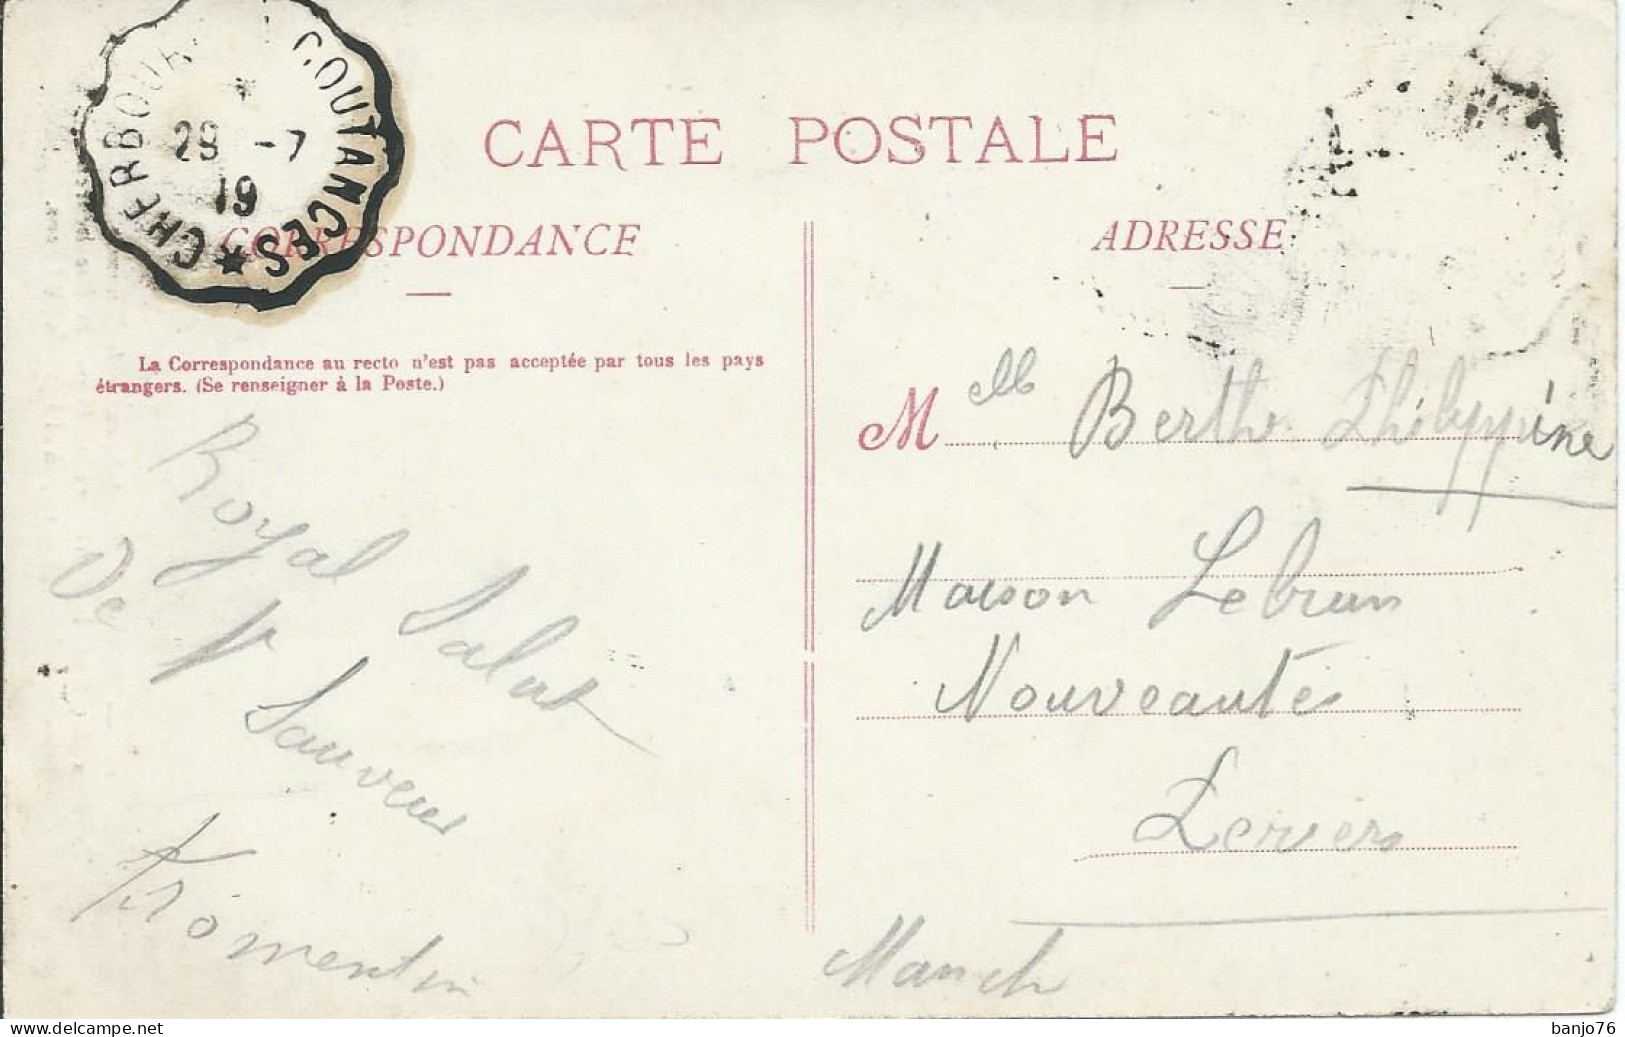 CHERBOURG COUTANCES
29 -7
19
CARTE POSTALE
CORRESPONDANCE
ADRESSE
La Correspondance au recto n'est pas acceptée par tous les pays
étrangers. (Se renseigner à la Poste.)
Royal Salut
De St Sauveur
Fromentin
Melle Berthe Philippine
Maison Lebrun
Nouveautés
Manche
banjo76